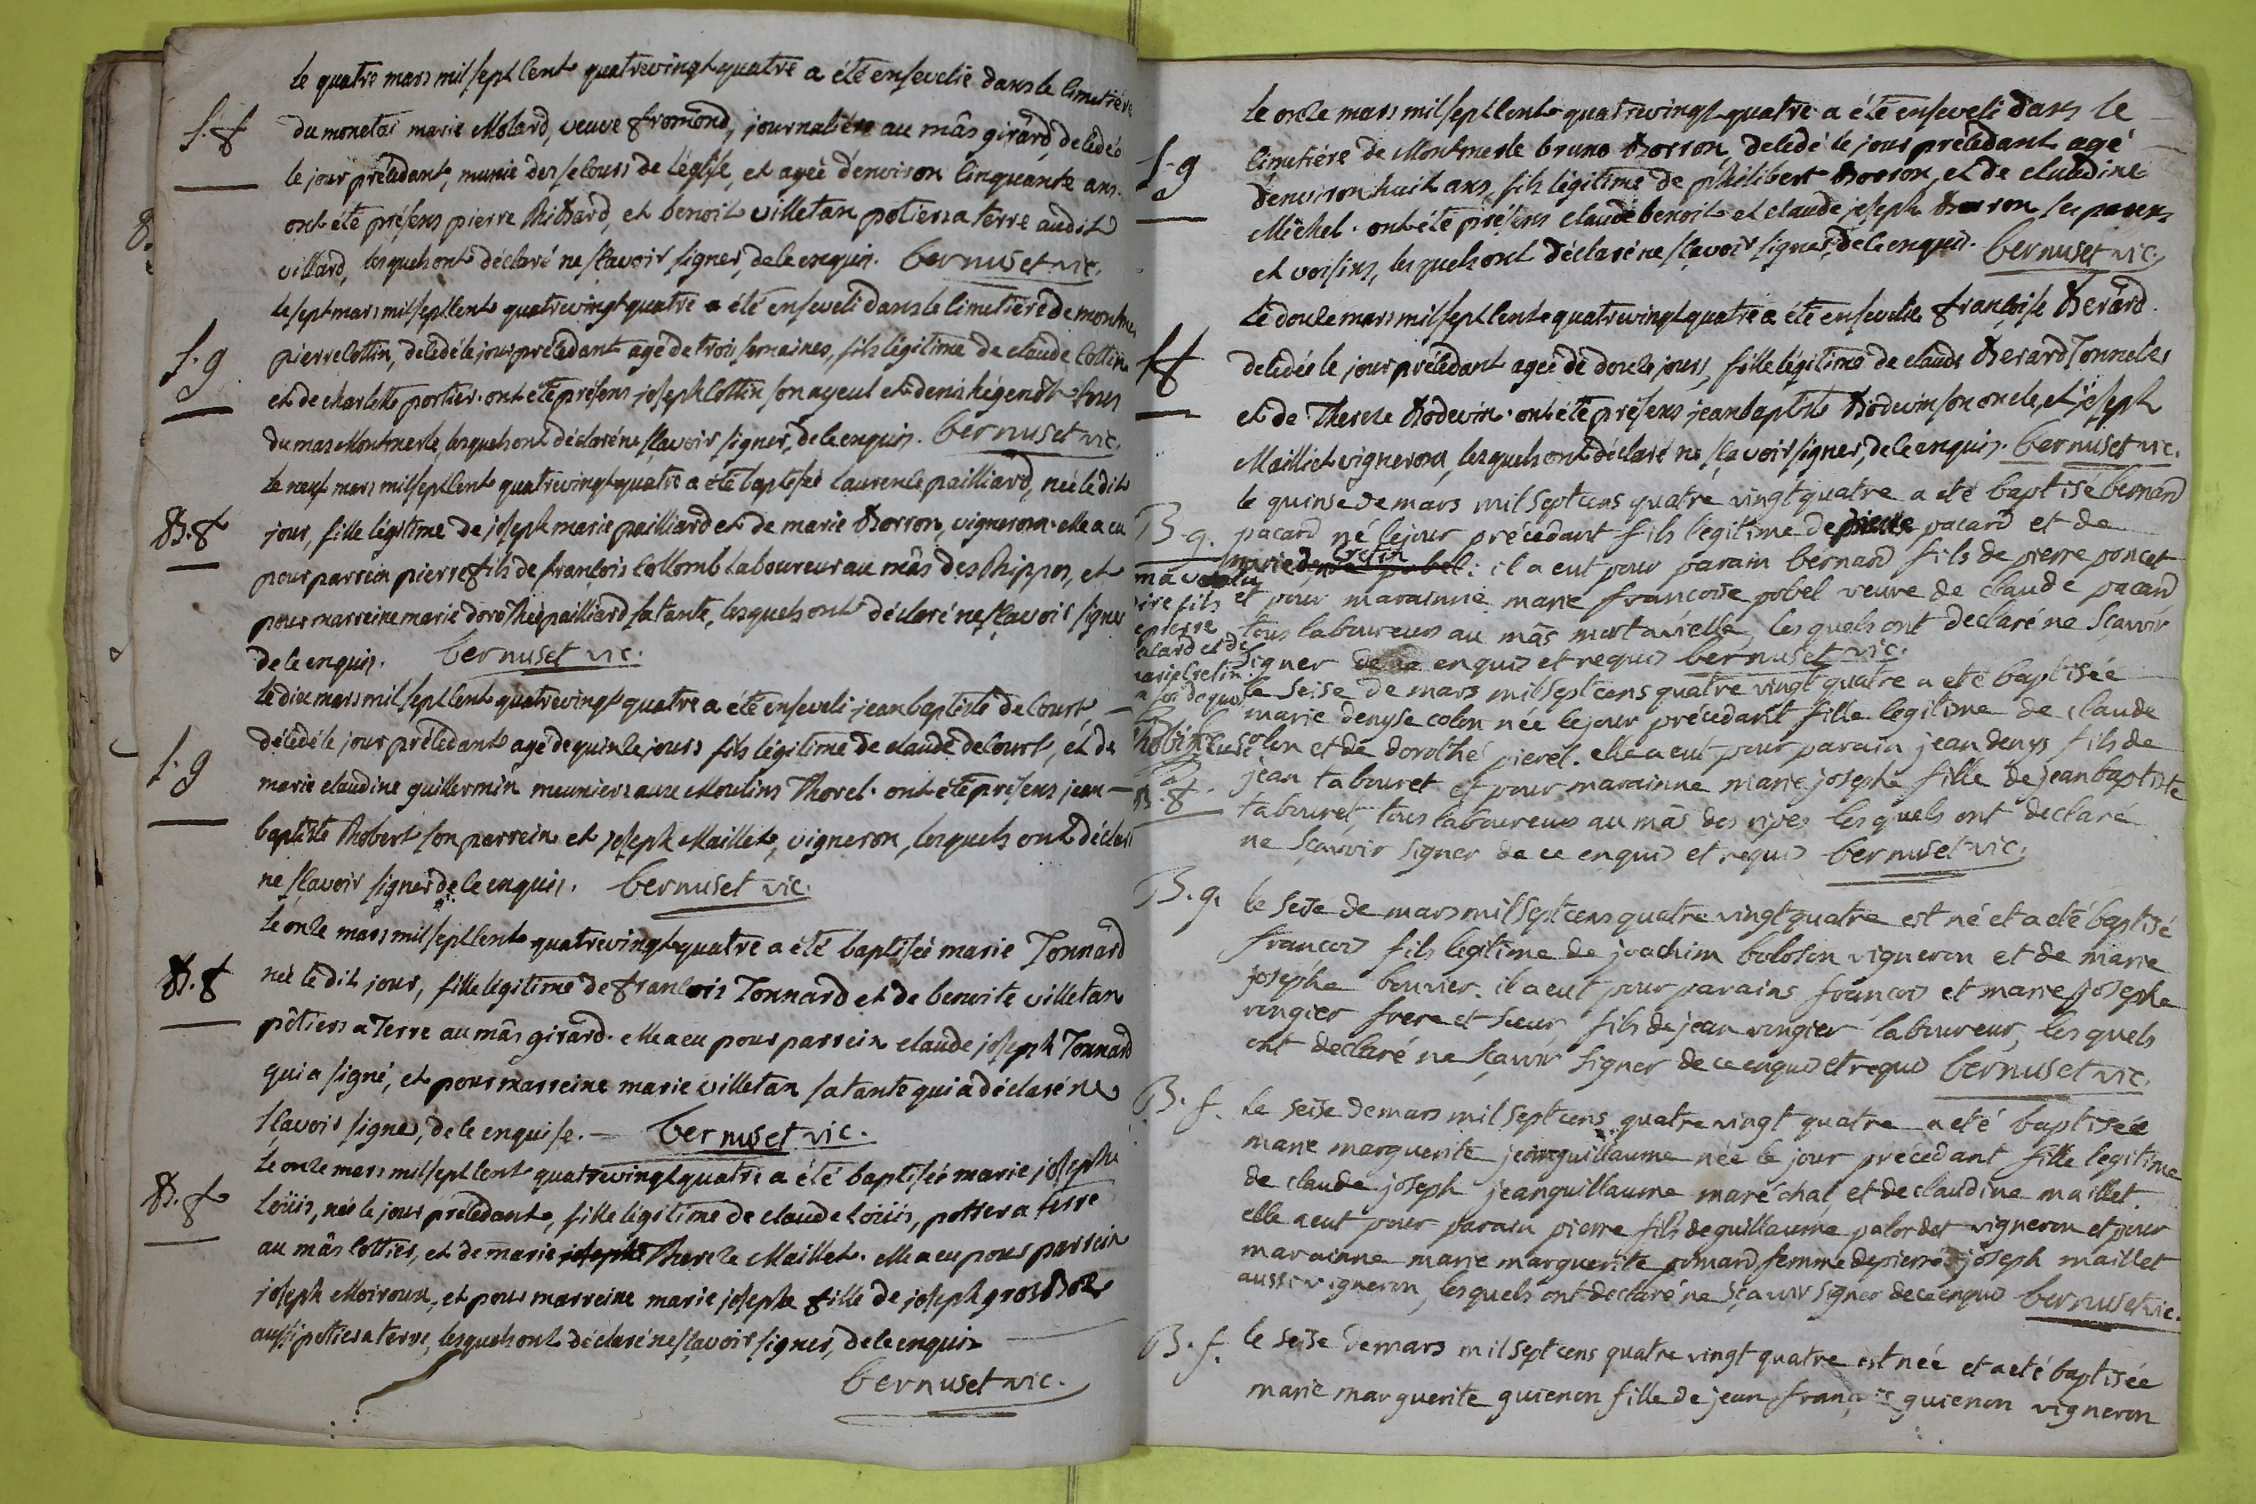 le quatre mars mil sept cent quatrevingt quatre a été ensevelie dans le cimetière
S. f du monetai marie Molard, veuve fromond, journalière au mâs girard, decedée
le jour précedant, munie des secours de léglise, et agée denviron cinquante ans.
ont été présens pierre Richard, et benoit villetan potiers a terre audit
villard, lesquels ont déclaré ne sçavoir signer, de ce enquis. bernuset vic.
le sept mars mil sept cent quatrevingt quatre a été enseveli dans le cimetière de montme
S. g pierre Cottin, decedé le jour précedant agé de trois semaines, fils légitime de claude Cottin
et de charlotte portier. ont été présens joseph Cottin son ayeul et denis hégendt tous
du mas Montmerle, lesquels ont déclaré ne sçavoir signer, de ce enquis. bernuset vic.
le neuf mars mil sept cent quatrevingt quatre a été baptisée laurence pailliard, née le dit
B. f jour, fille légitime de joseph marie pailliard et de marie Borron, vignerons. elle a eu
pour parrein pierre fils de francois Collomb laboureur au mâs des Rippes, et
pour marreine marie dorothée pailliard sa tante, lesquels ont déclaré ne sçavoir signer
de ce enquis. bernuset vic.
le dix mars mil sept cent quatrevingt quatre a été enseveli jean baptiste de Court,
S. g décédé le jour précedant agé de quinze jours fils légitime de claude de Court, et de
marie claudine guillermin meuniers aux Moulins Thorel. ont été présens jean
baptiste Robert son parrein et joseph Maillet, vigneron, lesquels ont déclaré
ne sçavoir signer de ce enquis. bernuset vic.
le onze mars mil sept cent quatrevingt quatre a été baptisée marie Tonnard
B. f née le dit jour, fille légitime de francois Tonnard et de benoite villetan
pôtiers a Terre au mâs girard. elle a eu pour parrein claude joseph Tonnard
qui a signé, et pour marreine marie villetan sa tante qui a déclaré ne
sçavoir signer, de ce enquise. bernuset vic.
le onze mars mil sept cent quatrevingt quatre a été baptisée marie josephe
B. f Loüis, née le jour précedant, fille légitime de claude Loüis, potier a terre
au mâs Cottier, et de marie josephe Therese Maillet. elle a eu pour parrein
joseph Moiroux, et pour marreine marie josephe fille de joseph gros
aussi potier a terre, lesquels ont déclaré ne sçavoir signer, de ce enquis
bernuset vic.
le onze mars mil sept cent quatrevingt quatre a été enseveli dans le
S. g cimetière de Montmerle bruno Borron, decedé le jour précedant agé
denviron huit ans, fils légitime de philibert Borron, et de claudine
Michel. ont été présens claude benoit et claude joseph Borron ses parens
et voisins, lesquels ont déclaré ne sçavoir signer, de ce enquis. bernuset vic.
Le douze mars mil sept cent quatrevingt quatre a été ensevelie françoise Berard
S. f decedée le jour précedant agée de douze jours, fille légitime de claude Berard Tonnelier
et de Therese Bodevin. ont été présens jean baptiste Bodevin son oncle, et joseph
Maillet vignerons, lesquels ont déclaré ne sçavoir signer, de ce enquis. bernuset vic.
le quinse de mars mil sept cens quatre vingt quatre a eté baptisé bernard
B. g. pacard né le jour précédant fils légitime de pierre pacard et de
marie denise cretin pobel. il a eut pour parain bernard fils de pierre poncet
et pour marainne marie françoise pobel veuve de claude pacard
tous laboureurs au mâs mortarielle, lesquels ont declaré ne sçavoir
signer de ce enquis et requis bernuset vic.
ire fils
pierre
pacard et de
marie cretin
le seise de mars mil sept cens quatre vingt quatre a eté baptisée
marie denyse colon née le jour précedant fille legitime de claude
colon et de dorothé pierel. elle a eut pour parain jean denys fils de
jean tabouret et pour marainne marie josephe fille de jean baptiste
B. f tabouret, tous laboureurs au mâs des rives lesquels ont declaré
ne sçavoir signer de ce enquis et requis bernuset vic.
B. g. le seise de mars mil sept cens quatre vingt quatre est né et a eté baptisé
françois fils legitime de joachim boloson vigneron et de marie
josephe bouvier. il a eut pour parains françois et marie josephe
vongier frere et sœur, fils de jean vongier laboureur, lesquels
ont declaré ne sçavoir signer de ce enquis et requis bernuset vic.
B. f. le seise de mars mil sept cens quatre vingt quatre a eté baptisée
marie marguerite jeanguillaume née le jour précedant fille légitime
de claude joseph jeanguillaume maréchal, et de claudine maillet.
elle a eut pour parain pierre fils de guillaume palordet vigneron et pour
marainne marie marguerite pomard femme de pierre joseph maillet
aussi vigneron, lesquels ont declaré ne sçavoir signer de ce enquis bernuset vic.
B. f. le seise de mars mil sept cens quatre vingt quatre est née et a eté baptisée
marie marguerite guienon fille de jean françois guienon vigneron